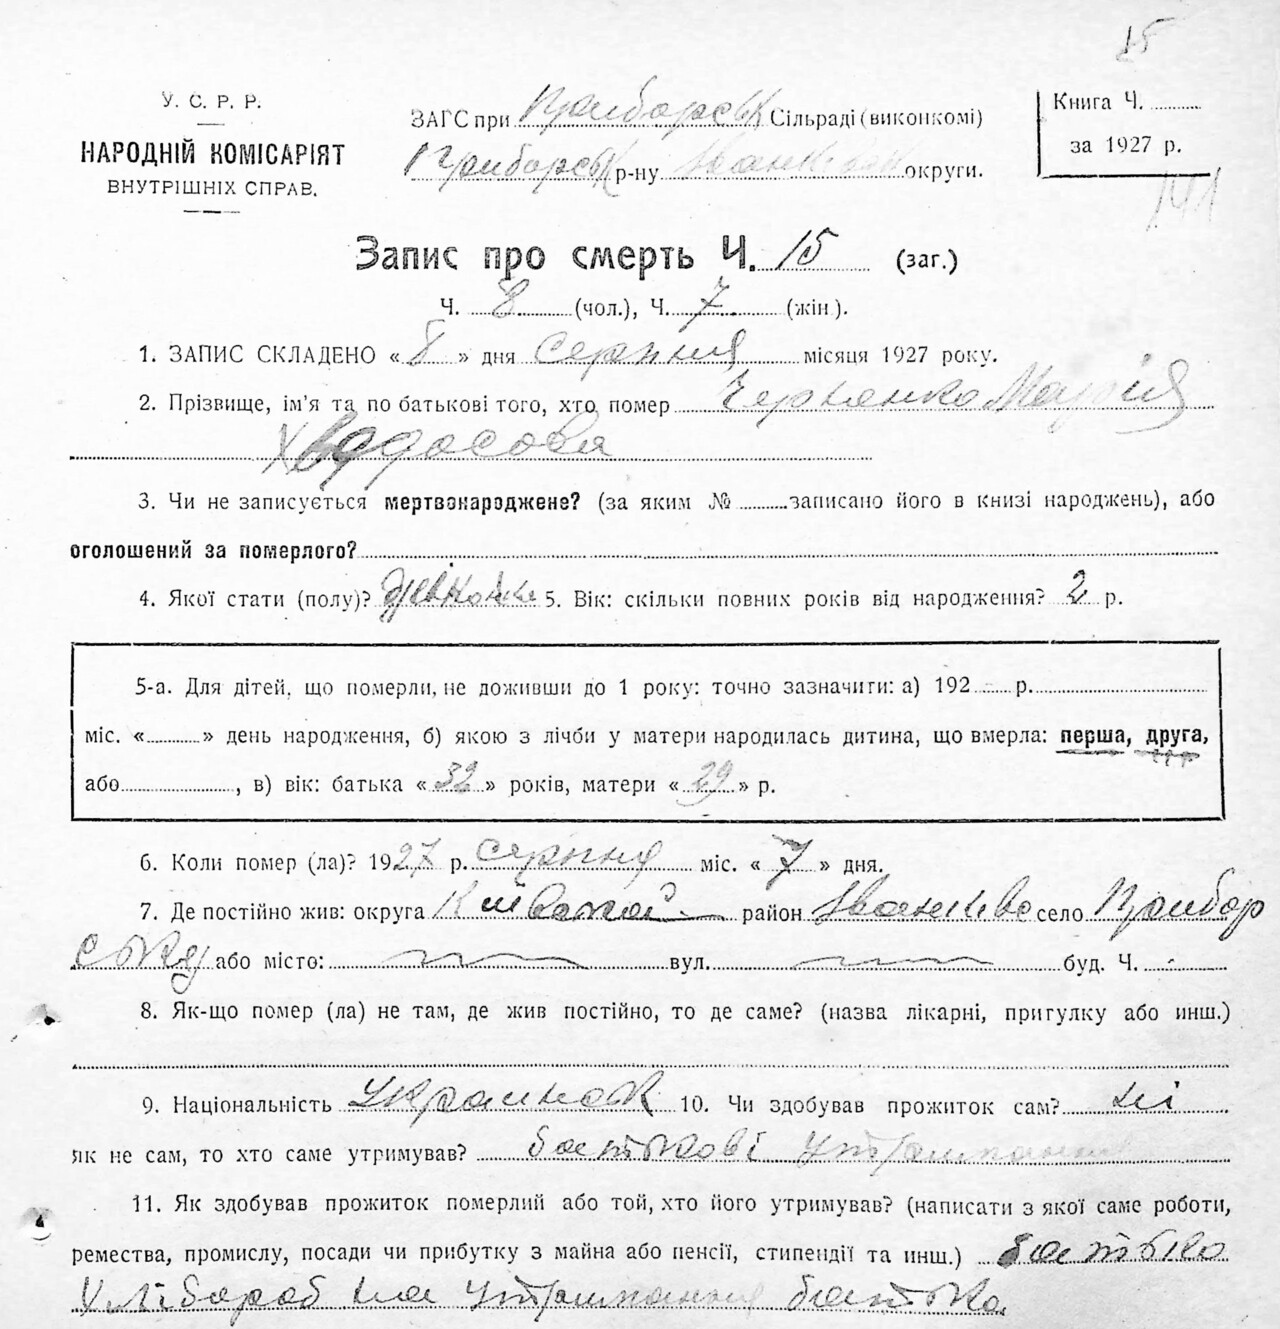 15
У. С. Р. Р.
НАРОДНІЙ КОМІСАРІЯТ
ВНУТРІШНІХ СПРАВ.
ЗАГС при Приборськ Сільраді (виконкомі)
Приборськ р-ну округи.
Книга Ч.
за 1927 р.
141
Запис про смерть Ч. 15 (заг.)
Ч. 8 (чол.), Ч. 7 (жін).
1. ЗАПИС СКЛАДЕНО «8» дня серпня місяця 1927 року.
2. Прізвище, ім'я та по батькові того, хто помер Марія
3. Чи не записується мертвонароджене? (за яким № записано його в книзі народжень), або
оголошений за померлого?
4. Якої стати (полу)? 5. Вік: скільки повних років від народження? 2 р.
5-а. Для дітей, що померли, не доживши до 1 року: точно зазначити: а) 192 р.
міс. « » день народження, б) якою з лічби у матери народилась дитина, що вмерла: перша, друга,
або , в) вік: батька «32» років, матери «29» р.
6. Коли помер (ла)? 1927 р. серпня міс. «7» дня.
7. Де постійно жив: округа район село Прибор
ську або місто: вул. буд. Ч. -
8. Як-що помер (ла) не там, де жив постійно, то де саме? (назва лікарні, пригулку або инш.)
9. Національність 10. Чи здобував прожиток сам? ні
як не сам, то хто саме утримував?
11. Як здобував прожиток померлий або той, хто його утримував? (написати з якої саме роботи,
ремества, промислу, посади чи прибутку з майна або пенсії, стипендії та инш.) батько
хлібароб на батька